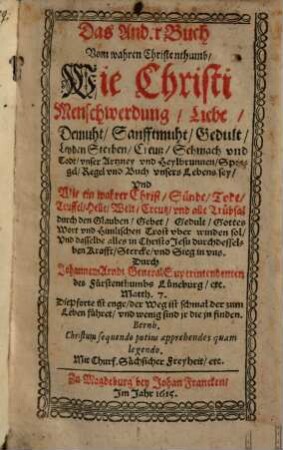 Das Ander Buch
Vom wahren Christenthumb/
Wie Christi
Menschwerdung / Liebe /
Demuht / Sanfftmuht / Gedult /
Leyden Sterben / Creutz / Schmach vnd
Todt / vnser Artzney vnd Heylbrunnen / Spie-
gel / Regel vnd Buch vnsers Lebens sey /
Vnd
Wie ein wahrer Christ / Sünde / Todt /
Teuffel / Helle / Welt / Creutz / vnd alle Trübsal
durch den Glauben / Gebet / Gedult / Gottes
Wort vnd Himlischen Trost vber winden sol /
Vnd dasselbe alles in Christo Jesu durch dessel-
ben Krafft / Stercke / vnd Sieg in vns.
Durch
Johannem Arndt General Superintendenten
des Fürstenthumbs Lüneburg / etc.
Matth. 7.
Die pforte ist enge / der Weg ist schmal der zum
Leben führet / vnd wenig sind jr die jn finden.
Bernh.
Christum sequendo potius apprehendes quam
legendo.
Mit Churf. Sächsicher Freyheit / etc.
Zu Magdeburg bey Johan Francken /
Im Jahr 1615.